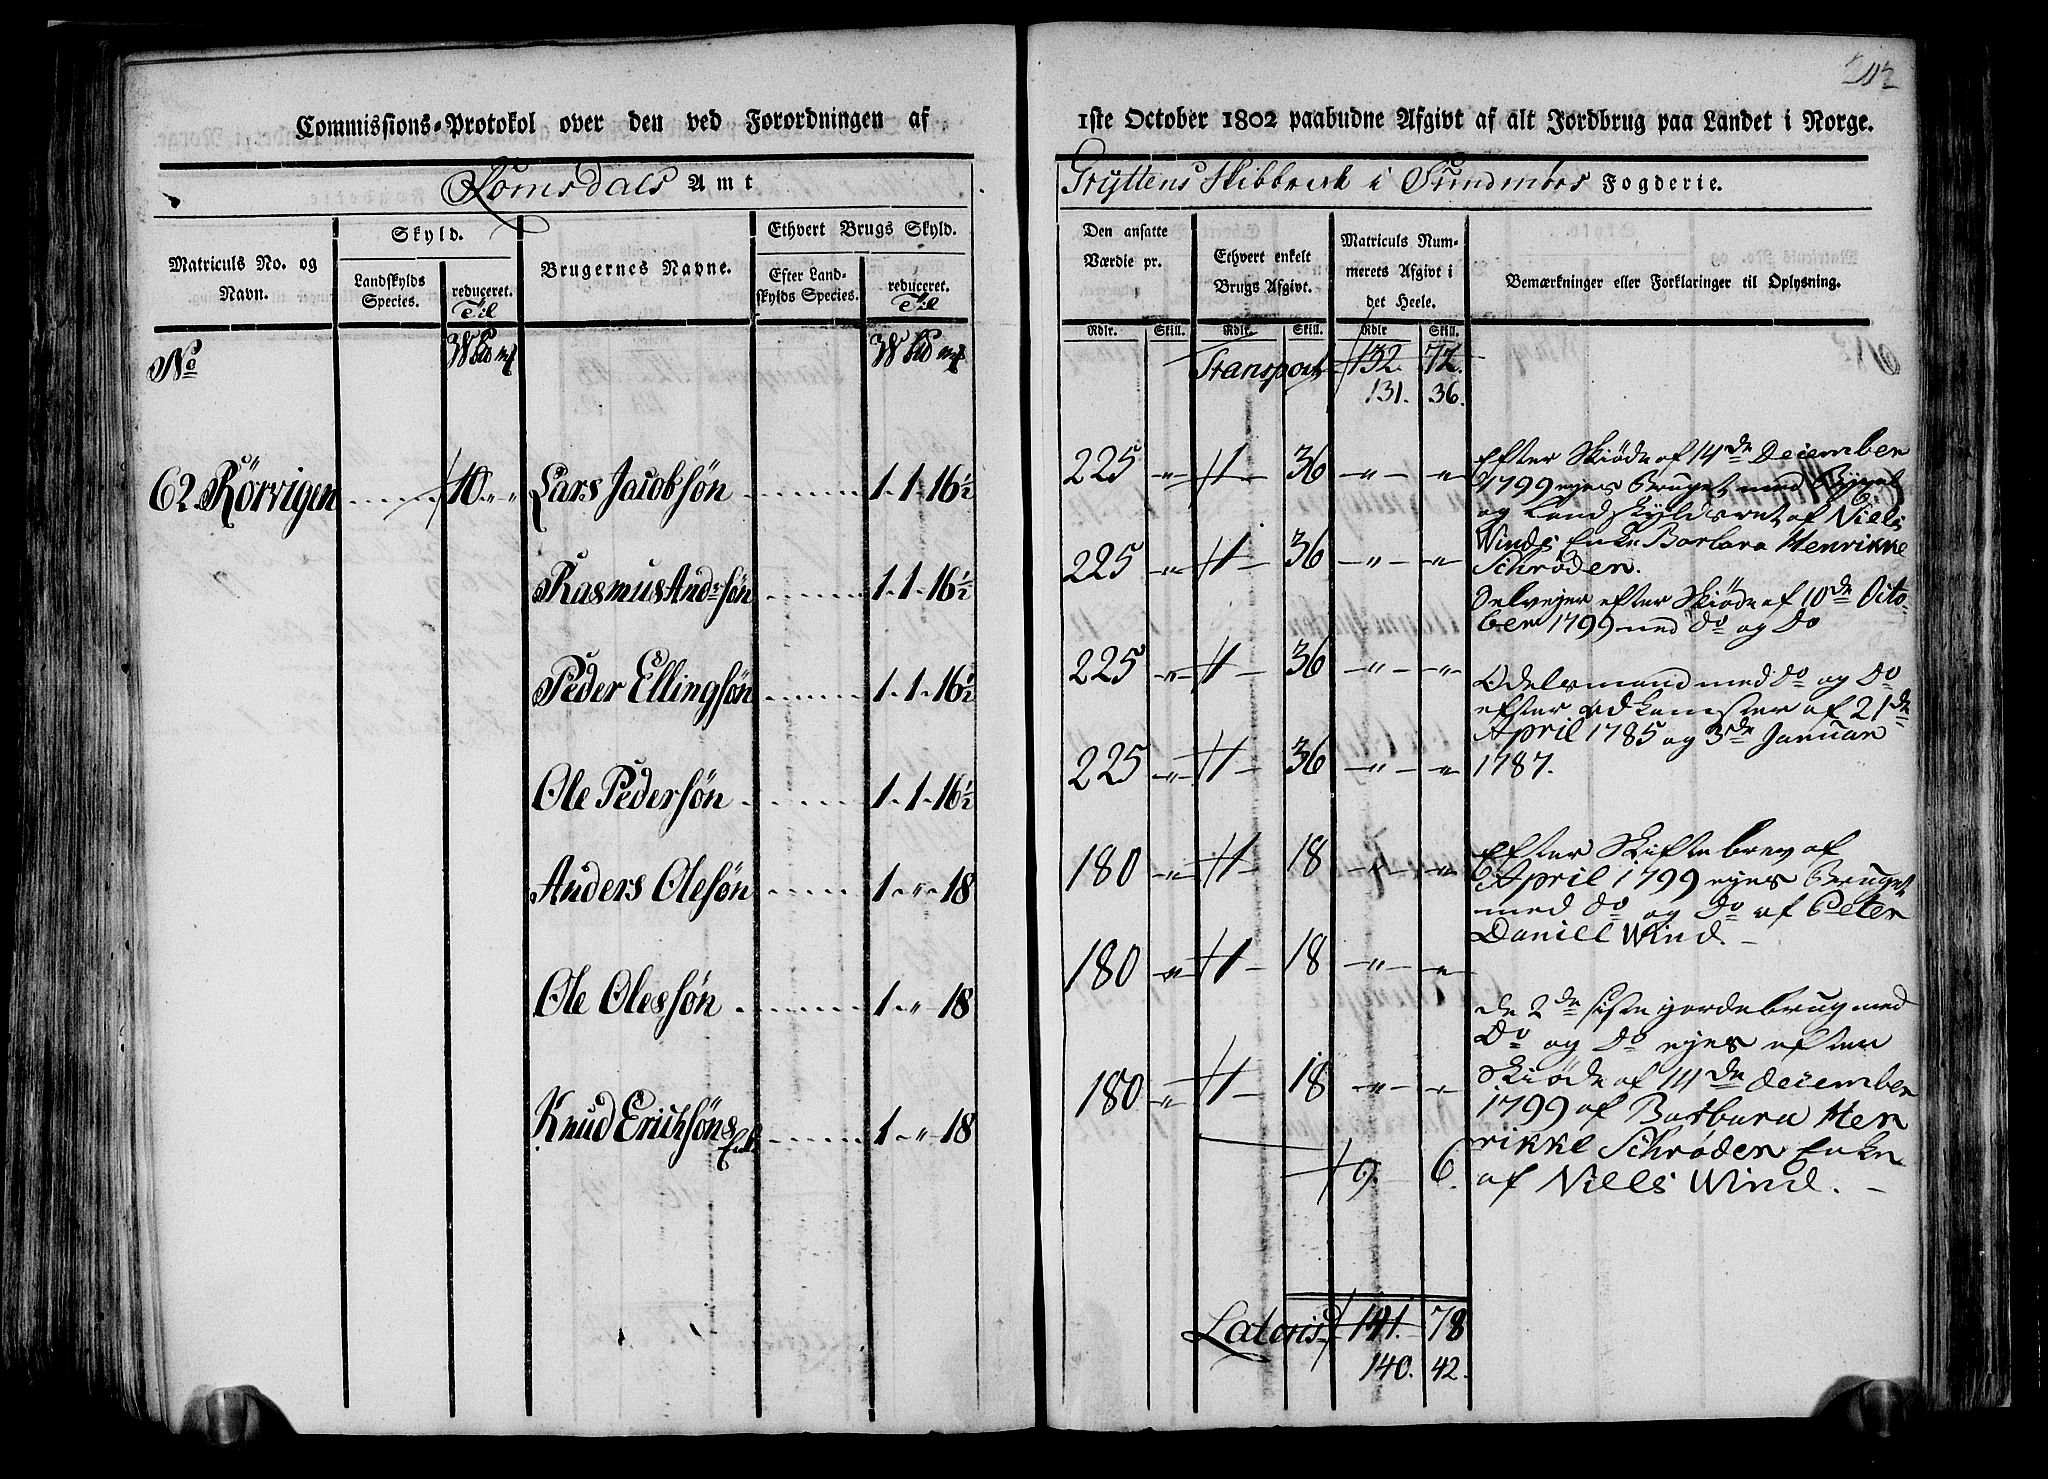 Commissions-Protokol over den ved Forordningen af
Romsdals Amt
Matriculs No. og Navn.
Skyld.
Landskylds Species.
reduceret. Til
Brugernes Navne.
Ethvert Brugs Skyld.
Efter Landskylds Species.
reduceret. Til
No
62. Rörvigen 10 " " Lars Jacobsön 1. 1. 16½
Rasmus Andsön 1. 1. 16½
Peder Ellingsön 1. 1. 16½
Ole Pedersön 1. 1. 16½
Anders Olesön 1 " 18
Ole Olessön 1 " 18
Knud Erichsöns Enk. 1 " 18
1ste October 1802 paabudne Afgivt af alt Jordbrug paa Landet i Norge.
Gryttens Skibbrede i Sundmörs Fogderie.
Den ansatte Værdie pr.
Ethvert enkelt Brugs Afgivt.
Matriculs Nummerets Afgivt i det Heele.
Bemærkninger eller Forklaringer til Oplysning.
Rdlr. Skill. Rdlr. Skill. Rdlr Skill.
Transport 132. 72.
131. 36.
225 " 1 36 " "
225 " 1 36 " "
225 " 1 36 " "
225 " 1 36 " "
180 " 1 18 " "
180 " 1 18 " "
180 " 1 18 " "
9. 6.
Lateris 141. 78
140. 42.
Efter Skiöde af 14de December
1799 ejes Bruget med Bygsel
og Landskyldsret af Niels
Winds Enke Barbara Henrikke
Schrøder.
Selvejer efter Skiöde af 10de Octo-
ber 1799 med do og do
Odelsmand med do og do
efter adkomster af 21de
April 1785 og 3de Januar
1787.
Efter Skiftebrev af
6 April 1799 ejes Bruget
med do og do af Peter
Daniel Wind.
de 2de siste jordebrug med
do og do ejes efter
Skiöde af 14de December
1799 af Barbara Hen
rikke Schrøder Enke
af Niels Wind.